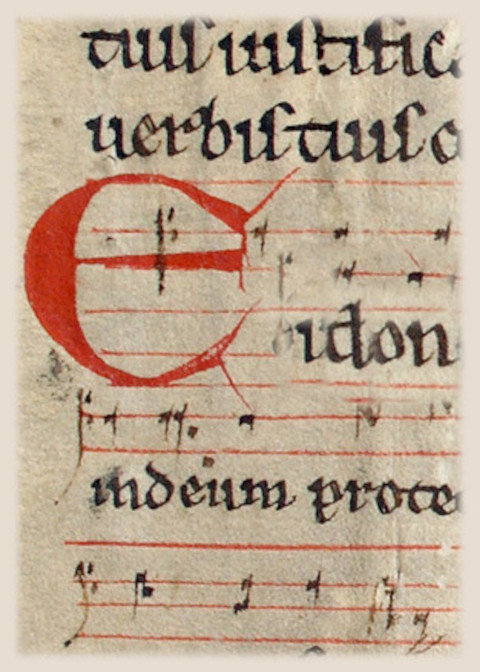 tuiſ iuſtific
uerbiſ tuiſ
E idon
indeum prote